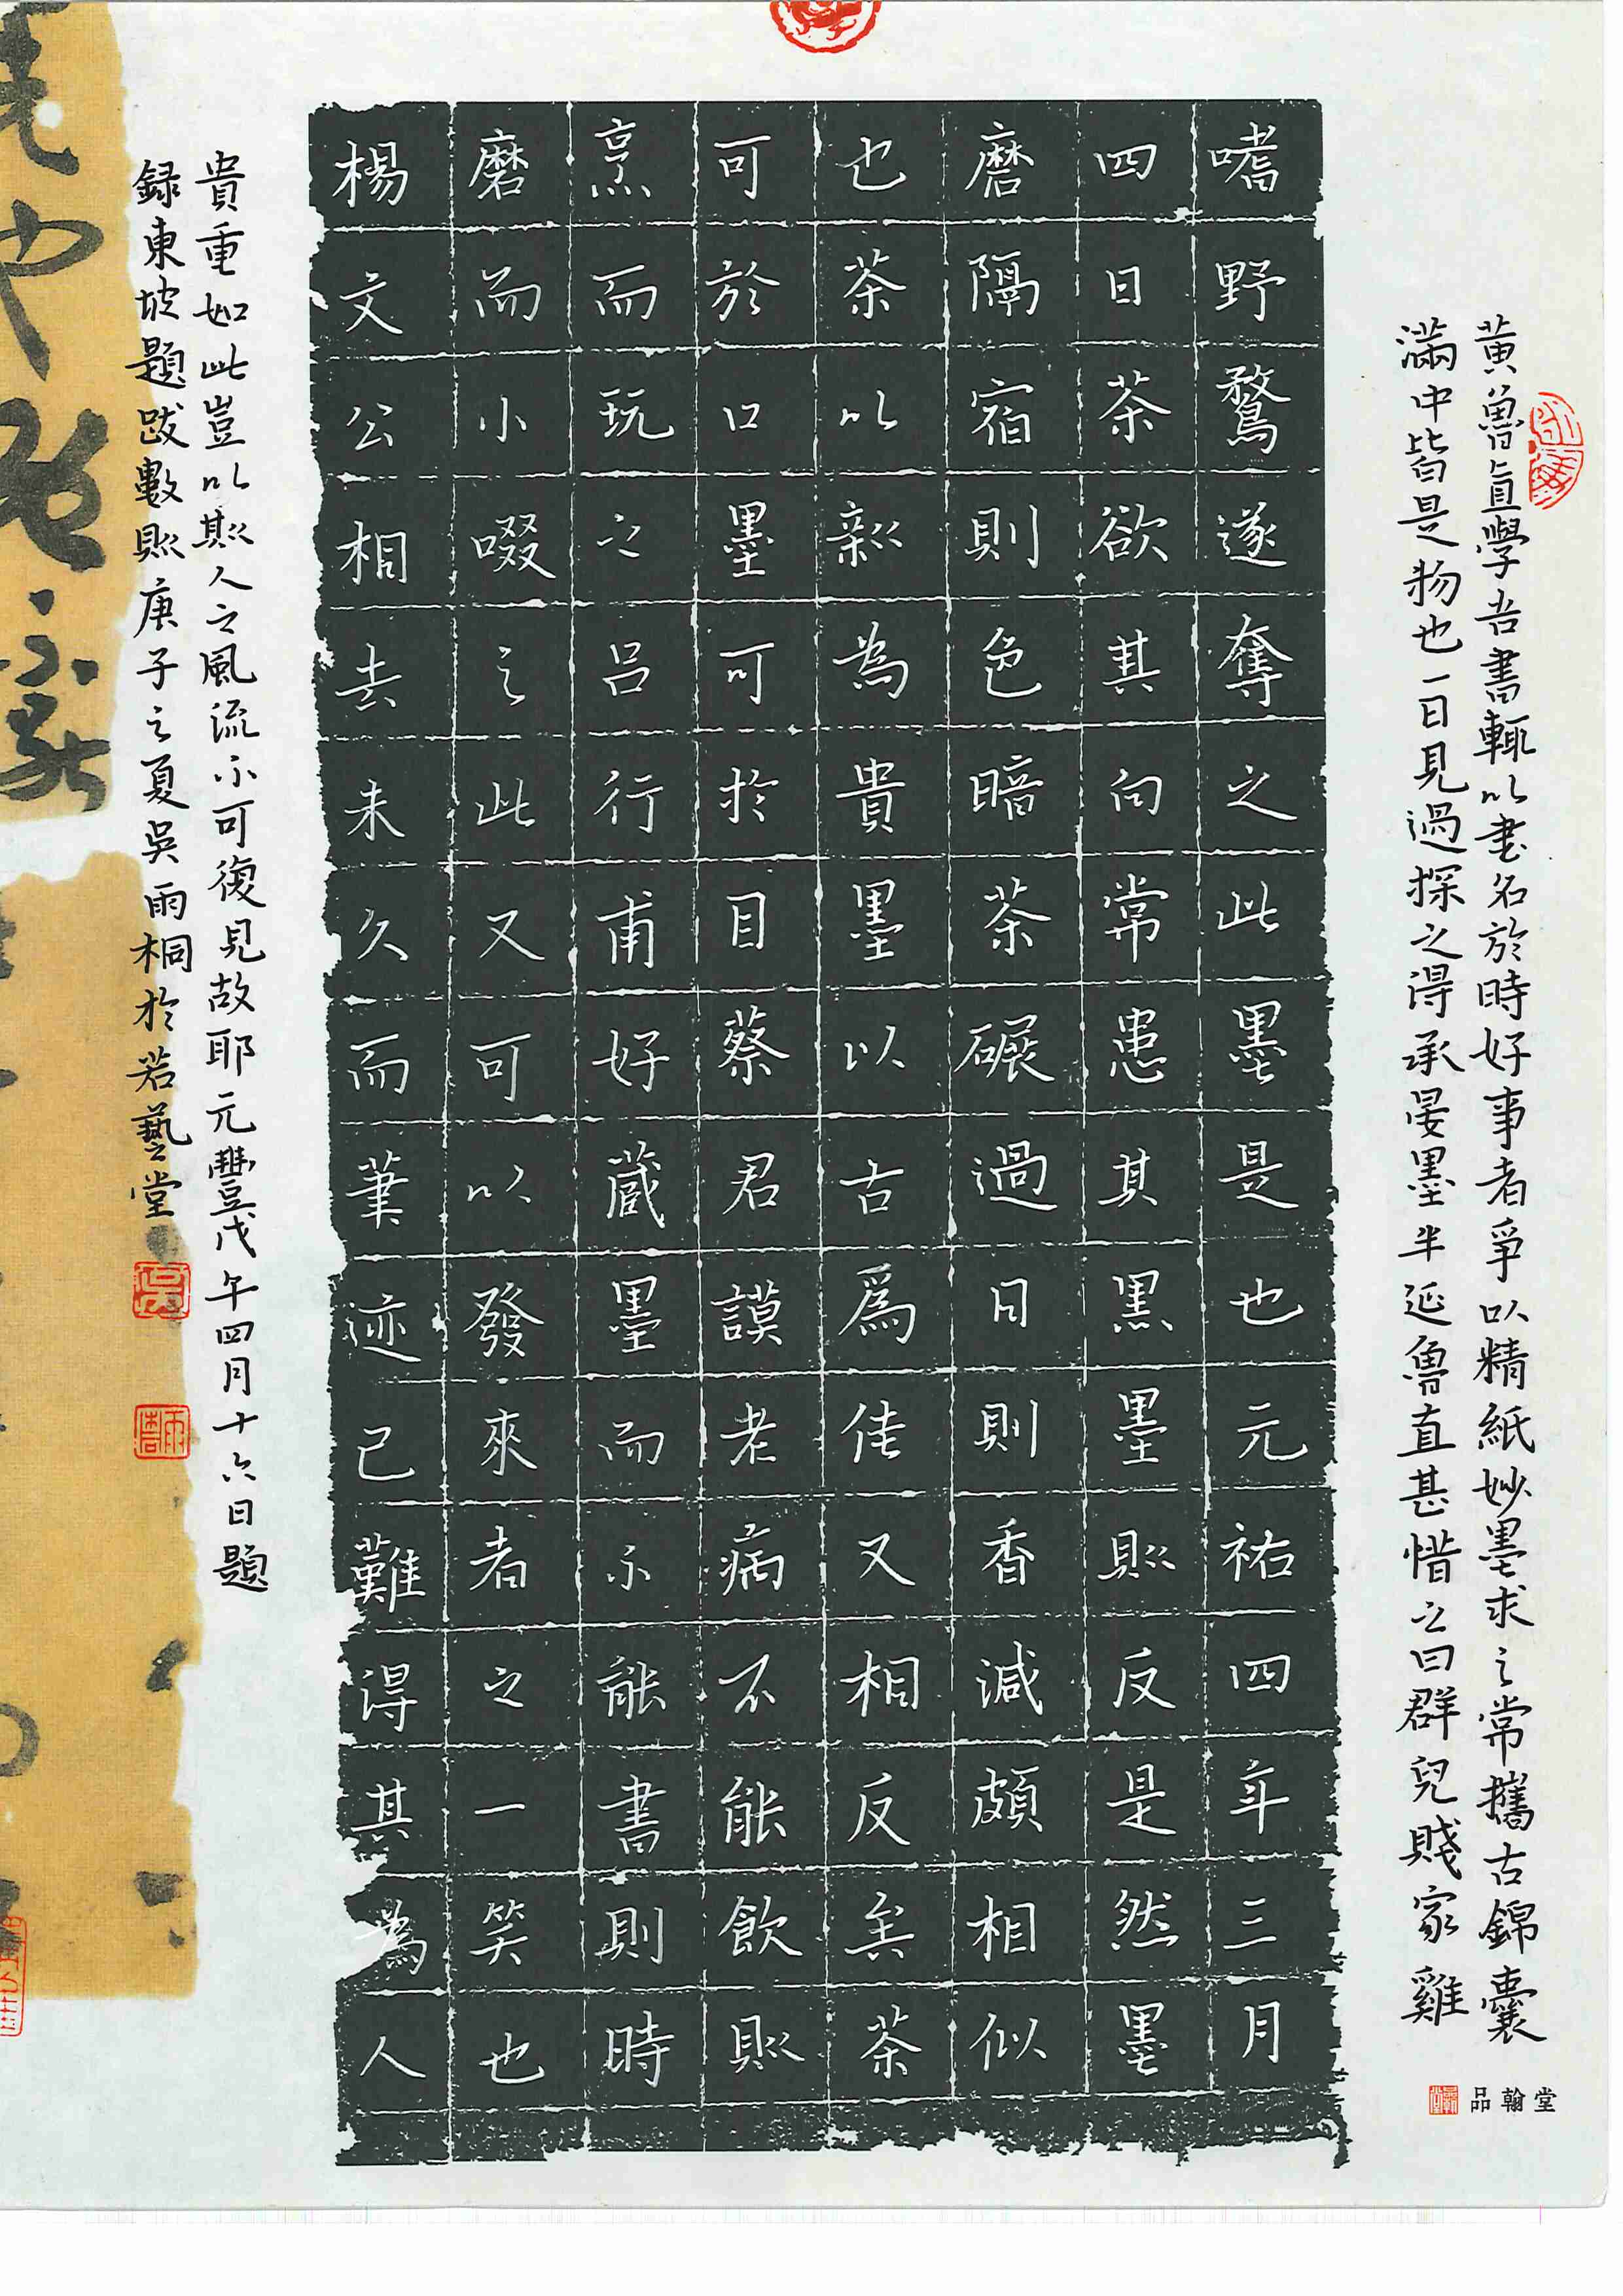 黃魯直學吾書輒以書名於時好事者爭以精紙妙墨求之常攜古錦囊
滿中皆是物也一日見過探之得承晏墨半延魯直甚惜之曰群兒賤家雞
嗜野鶩遂奪之此墨是也元祐四年三月
四日茶欲其白常患其黑墨則反是然墨
磨隔宿則色暗茶碾過日則香減頗相似
也茶以新為貴墨以古為佳又相反矣茶
可於口墨可於目蔡君謨老病不能飲則
烹而玩之呂行甫好藏墨而不能書則時
磨而小啜之此又可以發來者之一笑也
楊文公相去未久而筆迹已難得其為人
貴重如此豈以斯人之風流不可復見故耶元豐戊午四月十六日題
録東坡題跋數則庚子之夏吳雨桐於若藝堂
吳
品翰堂